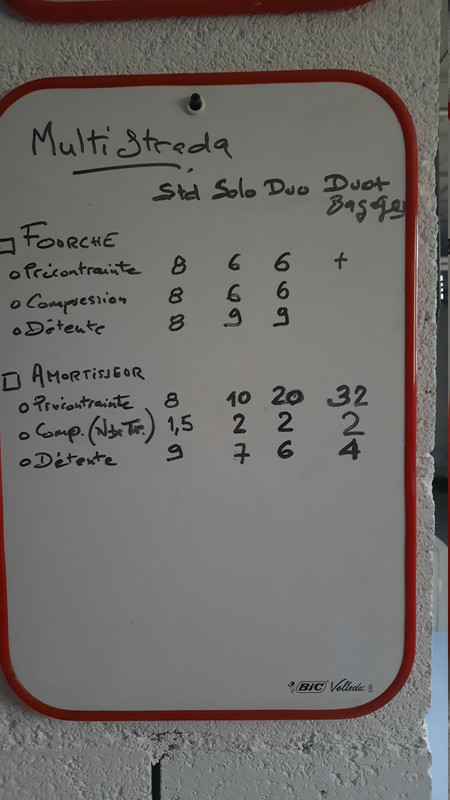 Multistrada
Std Solo Duo Duo+
Bagages
FOURCHE
Précontrainte 8 6 6 +
Compression 8 6 6
Détente 8 9 9
AMORTISSEUR
Précontrainte 8 10 20 32
Comp. (Nbr Tr.) 1,5 2 2 2
Détente 9 7 6 4
BIC Velleda